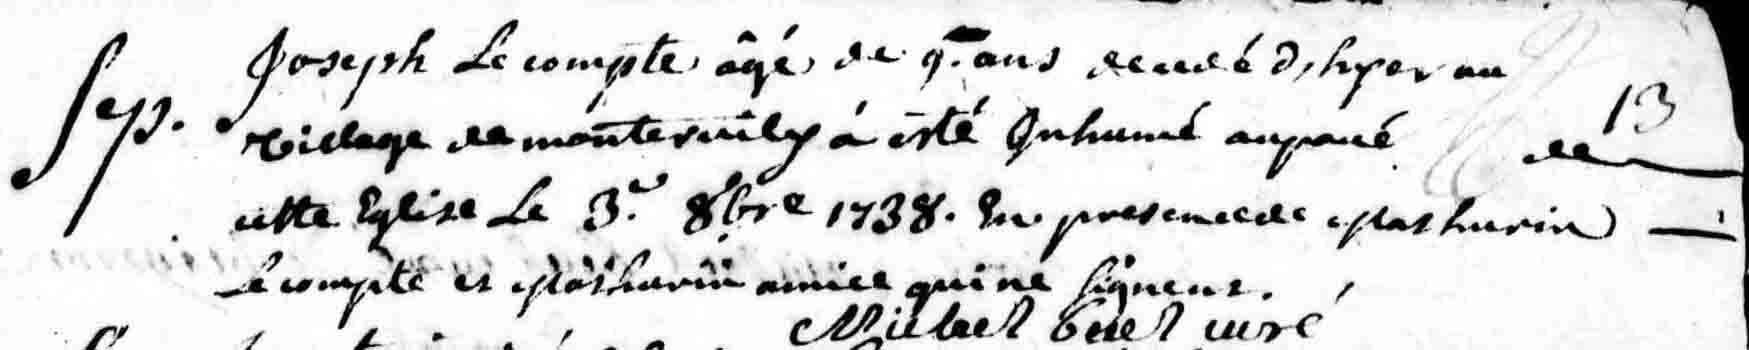 Sep. Joseph Le compte âgé de 9. ans decedé d'hyer au 13
village de montervily á esté Inhumé au paué de
cette Eglise Le 3.e 8bre 1738. En presence de Mathurin
Le compte et Mathurin amice qui ne signent.
Michel curé